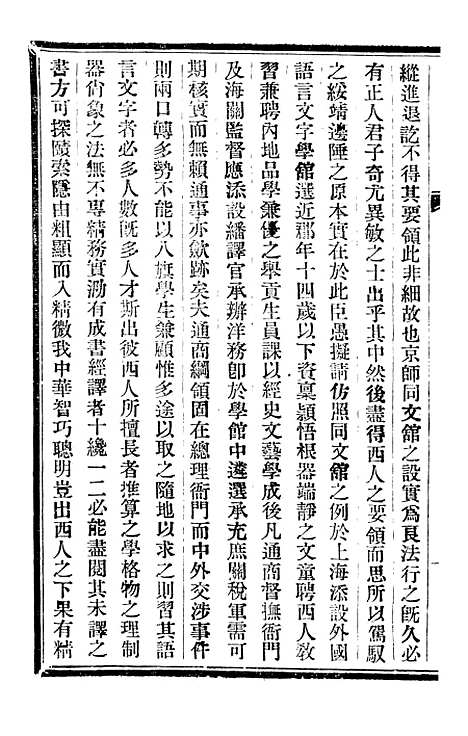 縱進退訖不得其要領此非細故也京師同文舘之設實爲良法行之旣久必
有正人君子奇尤異敏之士出乎其中然後盡得西人之要領而思所以駕馭
之綏靖邊陲之原本實在於此臣愚擬請仿照同文舘之例於上海添設外國
語言文字學舘選近郡年十四歲以下資稟穎悟根器端靜之文童聘西人敎
習兼聘內地品學兼優之舉貢生員課以經史文藝學成後凡通商督撫衙門
及海關監督應添設繙譯官承辦洋務卽於學館中遴選承充庶關稅軍需可
期核實而無賴通事亦斂跡矣夫通商綱領固在總理衙門而中外交涉事件
則兩口轉多勢不能以八旗學生兼顧惟多途以取之隨地以求之則習其語
言文字者必多人數旣多人才斯出彼西人所擅長者推算之學格物之理制
器尙象之法無不專精務實泐有成書經譯者十纔一二必能盡閱其未譯之
書方可探賾索隱由粗顯而入精微我中華智巧聰明豈出西人之下果有精